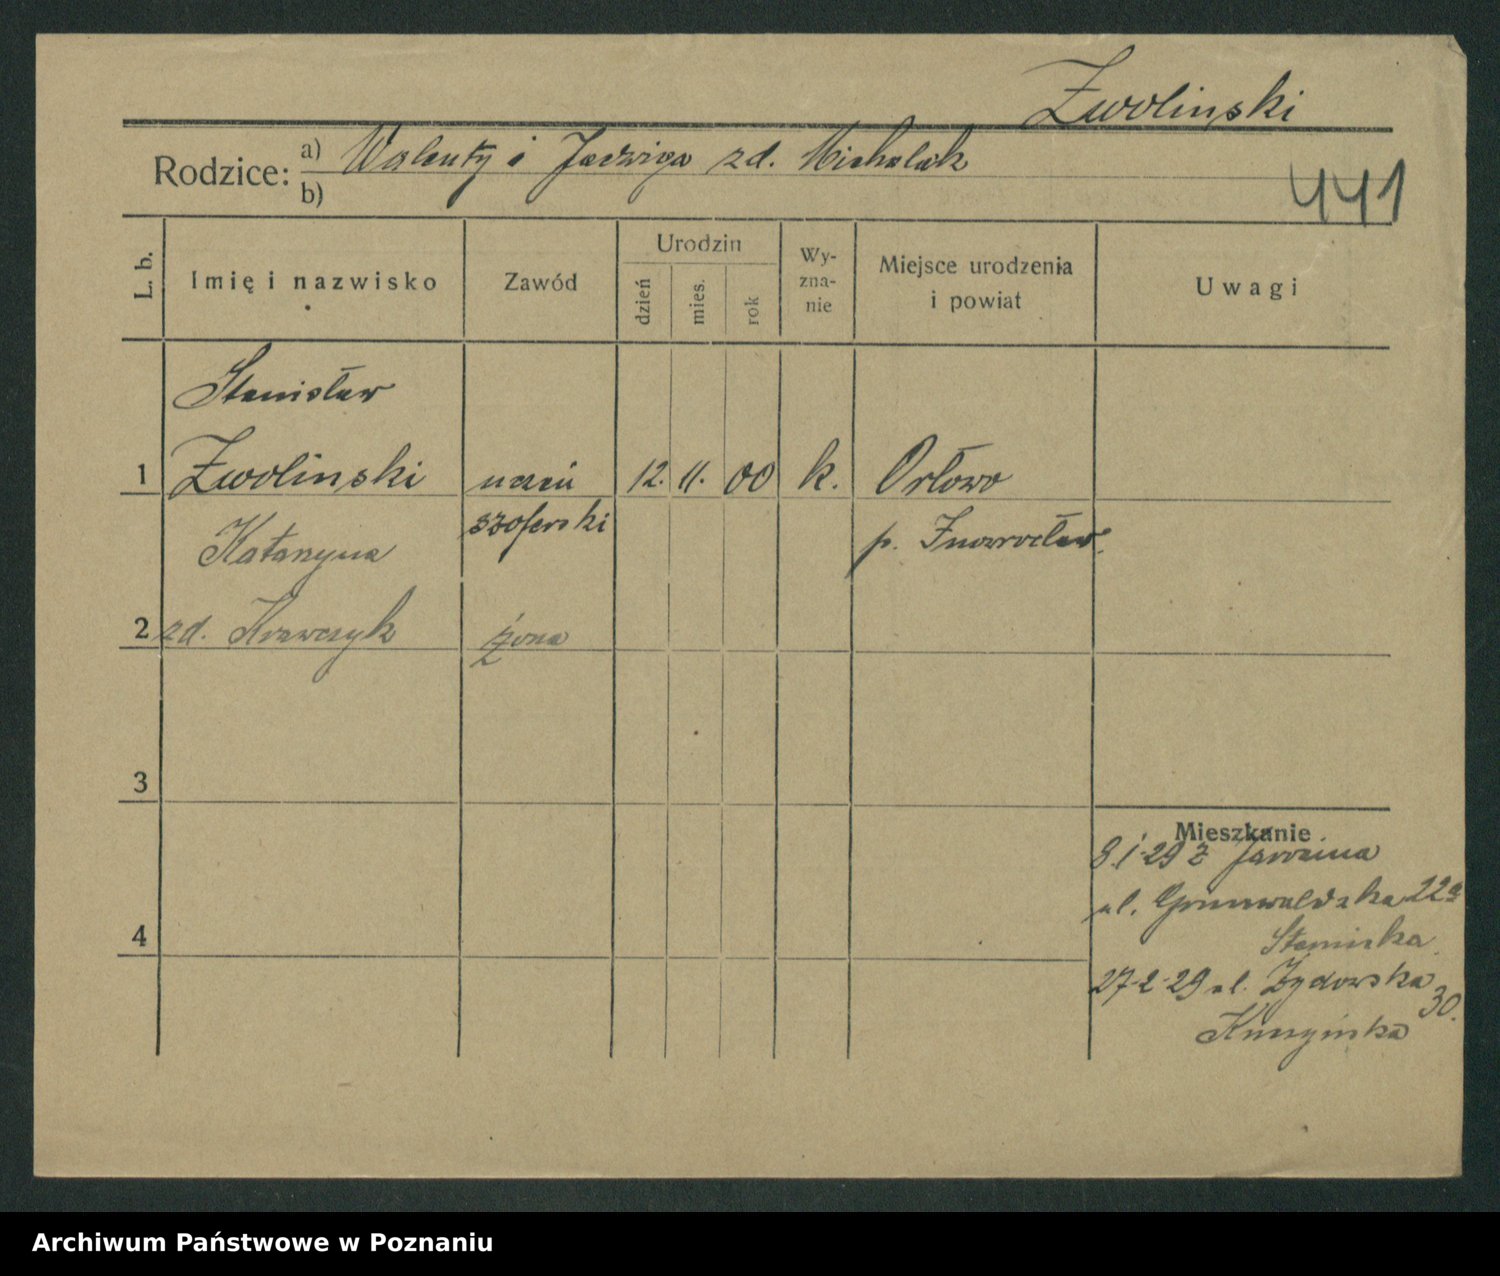 Zwolinski
Rodzice: a) Walenty i Jadwiga zd. Michalak
b)
441
L. b. Imię i nazwisko Zawód Urodzin dzień mies. rok Wy-zna-nie Miejsce urodzenia i powiat Uwagi
Stanisław
1 Zwolinski uczeń 12. 11. 00 k. Orłowo
szoferski p. Inowrocław.
Katarzyna
2 zd. Krawczyk żona
3
Mieszkanie
8.1-29 z Jarocina
ul. Grunwaldzka 22a
4
27-2-29 ul. Żydowska 30.
Archiwum Państwowe w Poznaniu